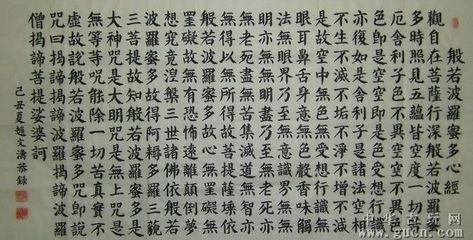 般若波羅蜜多心經
觀自在菩薩行深般若波羅蜜
多時照見五蘊皆空度一切苦
厄舍利子色不異空空不異色
色即是空空即是色受想行識
亦復如是舍利子是諸法空相
不生不滅不垢不淨不增不減
是故空中無色無受想行識無
眼耳鼻舌身意無色聲香味觸
法無眼界乃至無意識界無無
明亦無無明盡乃至無老死亦
無老死盡無苦集滅道無智亦
無得以無所得故菩提薩埵依
般若波羅蜜多故心無罣礙無
罣礙故無有恐怖遠離顛倒夢
想究竟涅槃三世諸佛依般若
波羅蜜多故得阿耨多羅三藐
三菩提故知般若波羅蜜多是
大神咒是大明咒是無上咒是
無等等咒能除一切苦真實不
虛故說般若波羅蜜多咒即說
咒曰揭諦揭諦波羅揭諦波羅
僧揭諦菩提娑婆訶
己丑夏趙文濤恭錄
中华古玩网
www.gucn.com